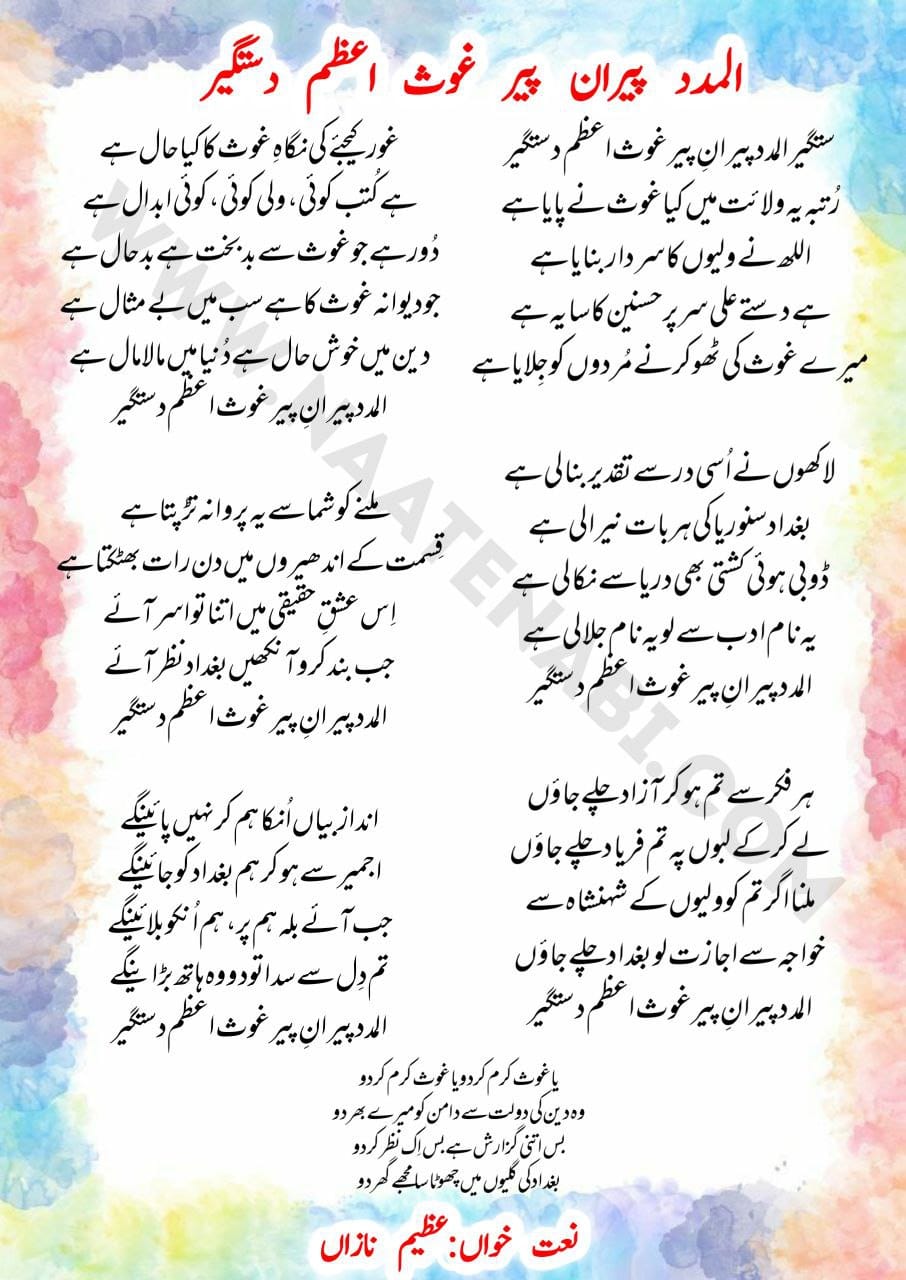 المدد پیران پیر غوث اعظم دستگیر
ستگیر المدد پیرانِ پیر غوث اعظم دستگیر
رُتبہ یہ ولائت میں کیا غوث نے پایا ہے
اللھ نے ولیوں کا سردار بنایا ہے
ہے دستے علی سر پر حسنین کا سایہ ہے
میرے غوث کی ٹھوکر نے مُردوں کو جِلایا ہے
لاکھوں نے اُسی در سے تقدیر بنالی ہے
بغداد سنوریا کی ہر بات نیرالی ہے
ڈوبی ہوئی کشتی بھی دریا سے نکالی ہے
یہ نام ادب سے لو یہ نام جلالی ہے
المدد پیرانِ پیر غوث اعظم دستگیر
ہر فکر سے تم ہو کر آزاد چلے جاؤں
لے کر کے لبوں پہ تم فریاد چلے جاؤں
ملنا اگر تم کو ولیوں کے شہنشاہ سے
خواجہ سے اجازت لو بغداد چلے جاؤں
المدد پیرانِ پیر غوث اعظم دستگیر
غور کیجئے کی نگاہِ غوث کا کیا حال ہے
ہے کُتب کوئی، ولی کوئی، کوئی ابدال ہے
دُور ہے جو غوث سے بدبخت ہے بدحال ہے
جو دیوانہ غوث کا ہے سب میں بے مثال ہے
دین میں خوش حال ہے دُنیا میں مالامال ہے
المدد پیرانِ پیر غوث اعظم دستگیر
ملنے کو شما سے یہ پروانہ تڑپتا ہے
قِسمت کے اندھیروں میں دن رات بھٹکتا ہے
اِس عشقِ حقیقی میں اتنا تو اسر آئے
جب بند کرو آنکھیں بغداد نظر آئے
المدد پیرانِ پیر غوث اعظم دستگیر
انداز بیاں اُنکا ہم کر نہیں پائینگے
اجمیر سے ہو کر ہم بغداد کو جائینگے
جب آئے بلہ ہم پر، ہم اُنکو بلائینگے
تم دِل سے سدا تو دو وہ ہاتھ بڑاینگے
المدد پیرانِ پیر غوث اعظم دستگیر
یا غوث کرم کردو یا غوث کرم کردو
وہ دین کی دولت سے دامن کو میرے بھر دو
بس اتنی گزارش ہے بس اِک نظر کردو
بغداد کی گلیوں میں چھوٹا سا مجھے گھر دو
نعت خواں: عظیم نازاں
WWW.NAATENABI.COM